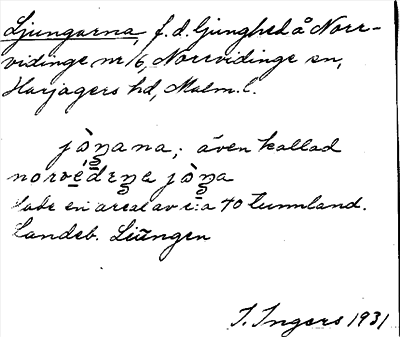 Ljungarna, f.d. ljunghed å Norr-
vidinge nr 6, Norrvidinge sn,
Harjagers hd, Malm. l.
jòŋana; även kallad
norvedeŋe jòŋa
Hade en areal av c:a 40 tunnland.
Landeb. Liūngen
I. Ingers 1931